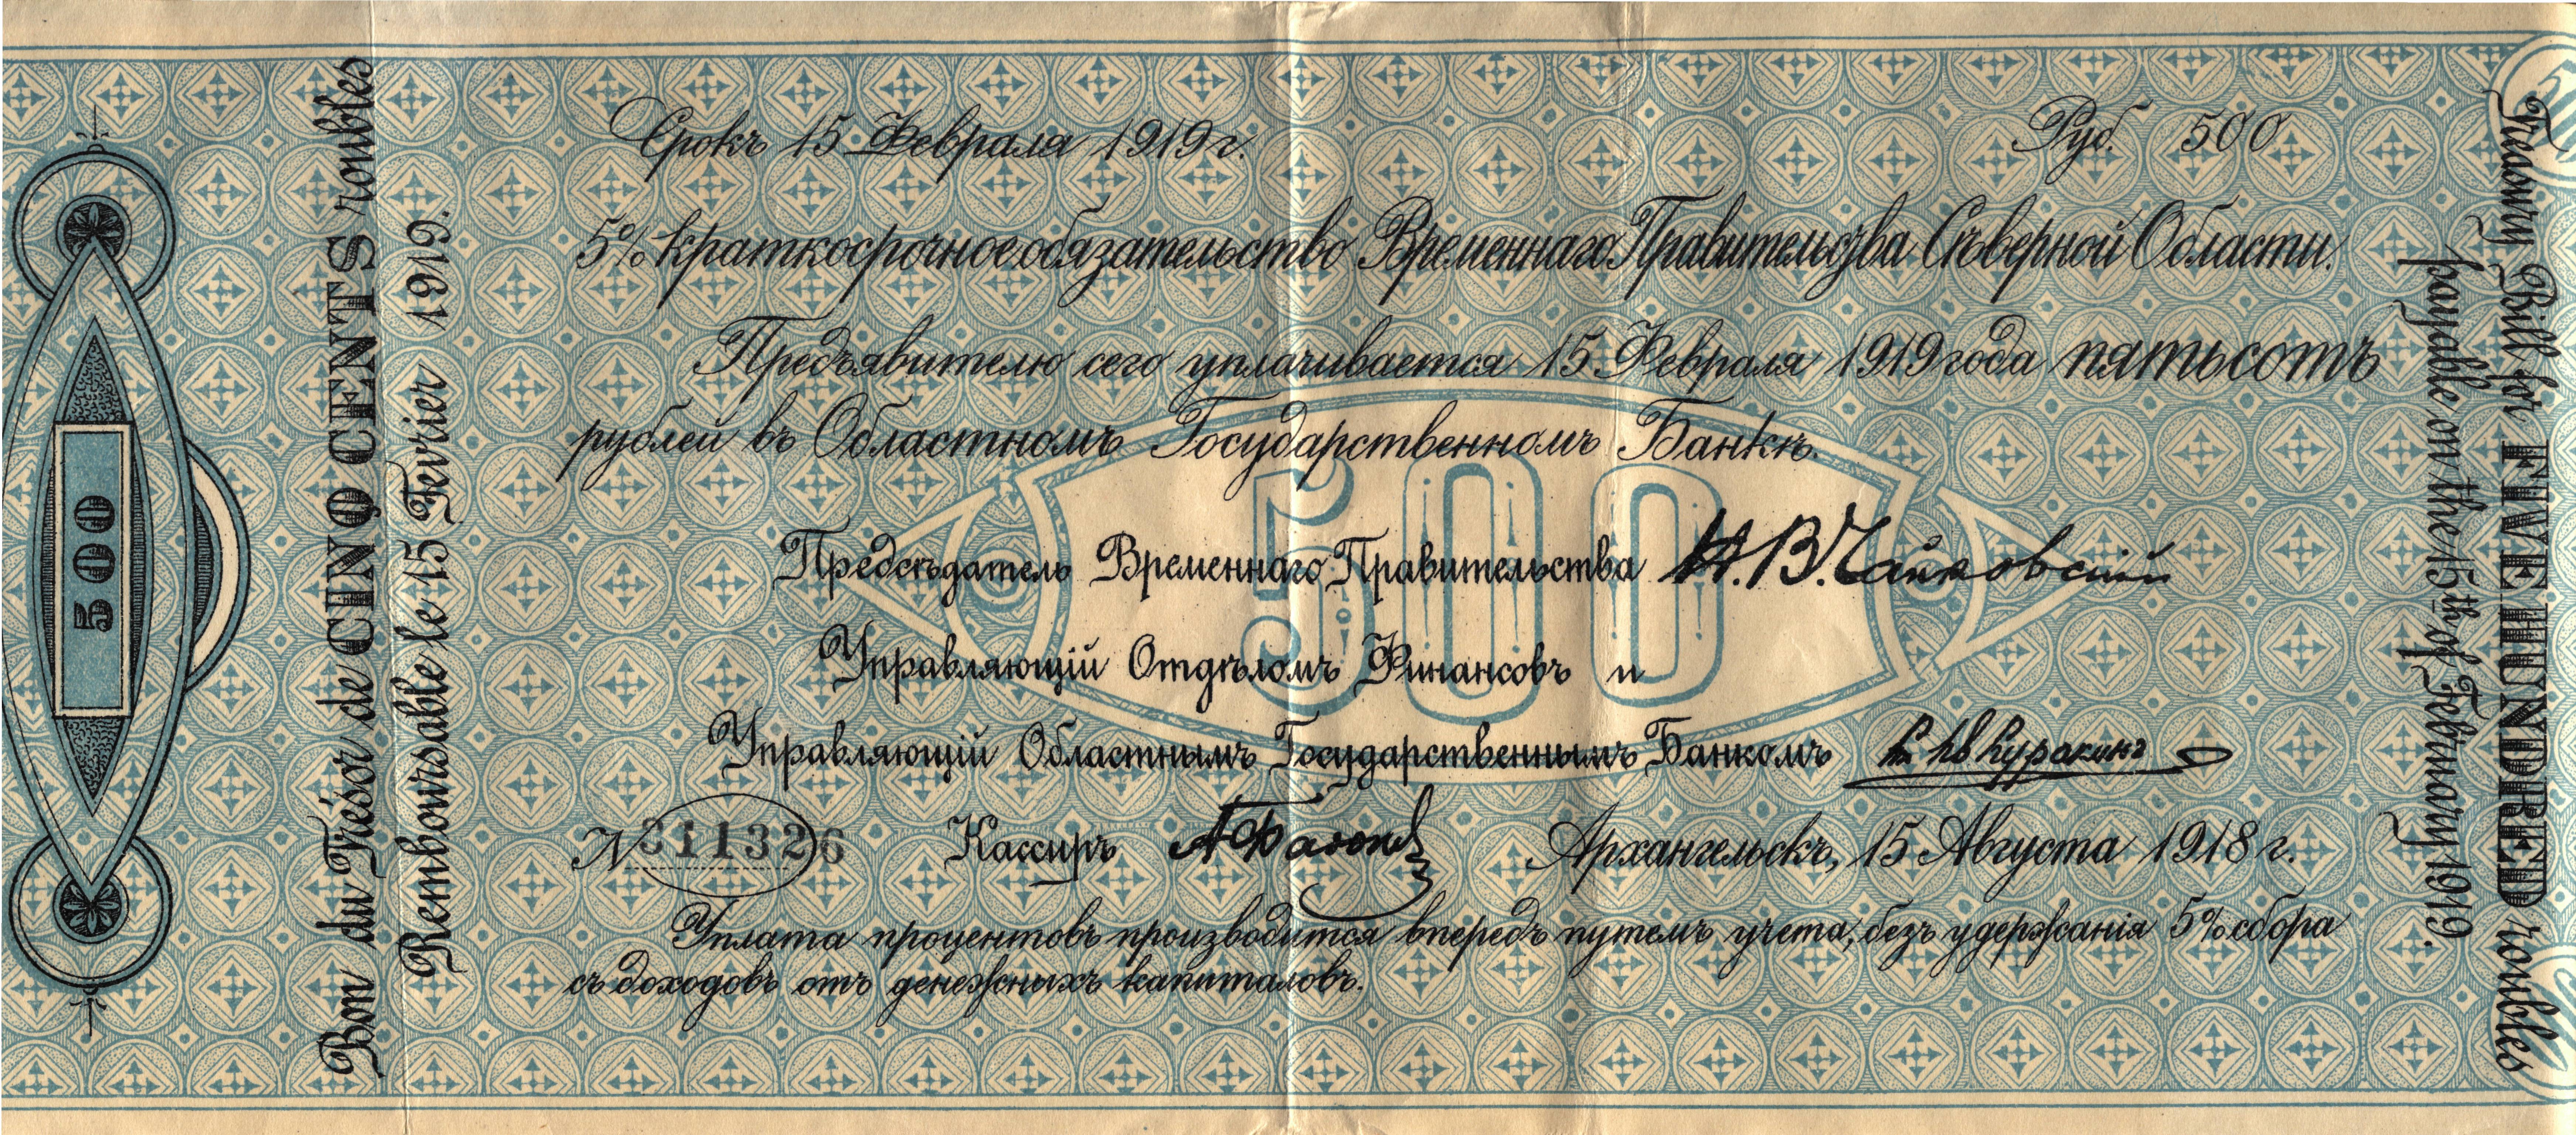 500
Bon du Trésor de CINQ CENTS roubles
Remboursable le 15 Fevrier 1919.
Срокъ 15 Февраля 1919 г.
Руб. 500
5% краткосрочное обязательство Временнаго Правительства Сѣверной Области.
Предъявителю сего уплачивается 15 Февраля 1919 года пятьсотъ
рублей въ Областномъ Государственномъ Банкѣ.
500
Предсѣдатель Временнаго Правительства Н. В. Чайковскій
Управляющій Отдѣломъ Финансовъ и
Управляющій Областнымъ Государственнымъ Банкомъ Куракинъ
N 311326 Кассиръ
Архангельскъ, 15 Августа 1918 г.
Уплата процентовъ производится впередъ путемъ учета, безъ удержанія 5% сбора
съ доходовъ отъ денежныхъ капиталовъ.
Treasury Bill for FIVE HUNDRED roubles
payable on the 15th of February 1919.